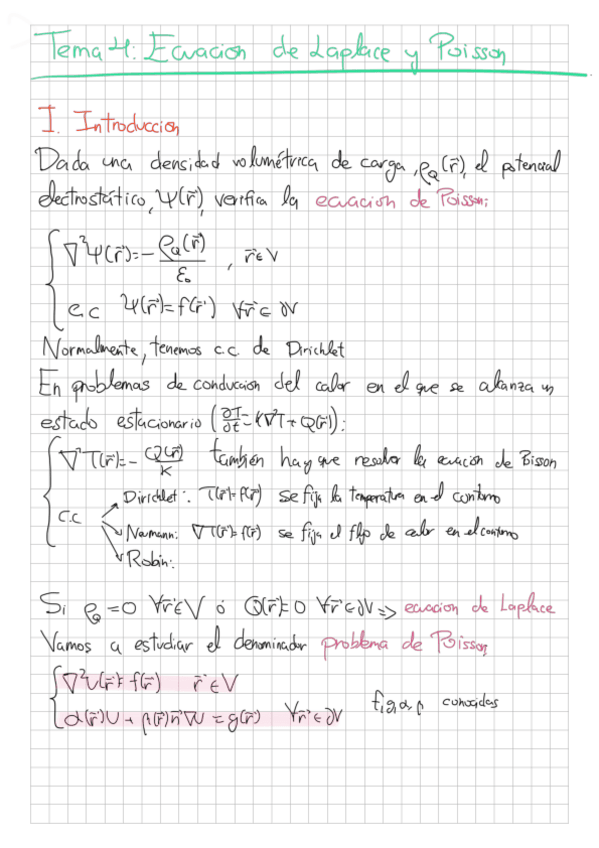 Tema 4: Ecuacion de Laplace y Poisson
I. Introduccion
Dada una densidad volumétrica de carga, ρ_Q(r⃗), el potencial
electrostático, Ψ(r⃗), verifica la ecuacion de Poisson:
∇²Ψ(r⃗)=-ρ_Q(r⃗)/ε₀ , r⃗∈V
c.c Ψ(r⃗)=f(r⃗) ∀r⃗∈∂V
Normalmente, tenemos c.c de Dirichlet
En problemas de conducion del calor en el que se alcanza un
estado estacionario (∂T/∂t=K∇²T+Q(r⃗)):
∇²T(r⃗)=-Q(r⃗)/K también hay que resolver la ecuacion de Poisson
c.c
Dirichlet: T(r⃗)=f(r⃗) se fija la temperatura en el contorno
Neumann: ∇T(r⃗)=f(r⃗) se fija el flujo de calor en el contorno
Robin:
Si ρ_Q=0 ∀r⃗∈V ó Q(r⃗)=0 ∀r⃗∈∂V => ecuacion de Laplace
Vamos a estudiar el denominador problema de Poisson
∇²U(r⃗)=f(r⃗) r⃗∈V
α(r⃗)U+β(r⃗)n⃗∇U=g(r⃗) ∀r⃗∈∂V
conocidas